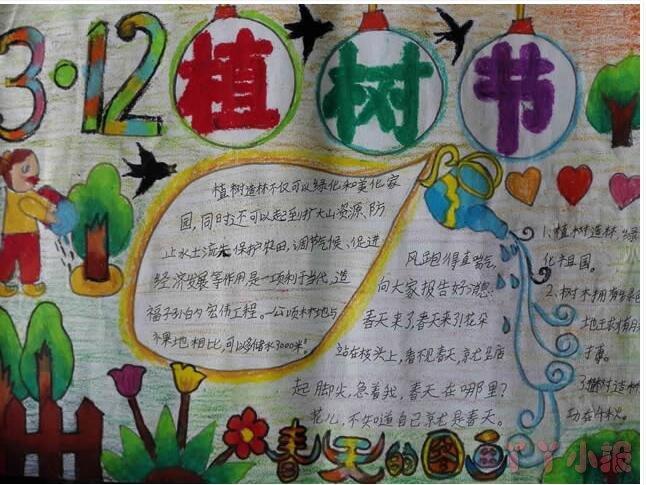 3·12植树节
植树造林不仅可以绿化和美化家
园,同时还可以起到扩大山资源、防
止水土流失保护农田,调节气候、促进
经济发展等作用,是一项利于当代、造
福子孙的宏伟工程。一公顷林地与
地相比,可以多储水3000米³
风跑得直喘气,
向大家报告好消息:
春天来了,春天来了!花朵
站在枝头上,看不见春天,就
起脚尖,急着找,春天在哪里?
花儿,不知道自己就是春天。
1、植树造林绿
化祖国。
2、树木拥有
3植树造林
功在千秋。
春天的图画
丫丫小报